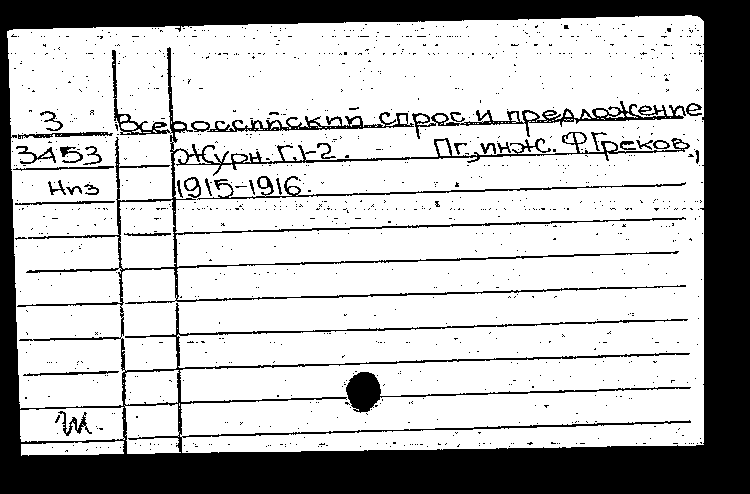 З Всероссийский спрос и предложение
3453 Журн. Г.1-2. Пг., инж. Ф. Греков,
Нпз 1915-1916.
Ж.